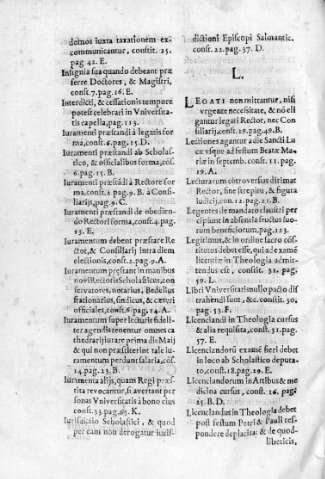 demos iuxta taxationem ex
communicantur, constit. 25.
pag. 42. E.
Insignia sua quando debeant præ
ferre Doctores, & Magistri,
const. 7. pag. 16. E.
Interdicti, & cessationis tempore
potest celebrari in Vniuersita
tis capella, pag. 113.
Iuramenti præstādi à legatis for
ma, const. 6. pag. 15. D.
Iuramenti præstādi ab Scholas
tico, & officialibus forma, cōst.
6. pag. 15. B.
Iuramenti præstādi à Rectore for
ma, const. 2. pag. 9. B. à Consi-
liarijs, pag. 9. C.
Iuramenti præstandi de obedien-
do Rectori forma, const. 4. pag.
13. E.
Iuramentum debent præstare Re
ctor, & Consiliarij intra diem
electionis, const. 2. pag. 9. A.
Iuramentum præstant in manibus
noui Rectoris Scholasticus, con
seruatores, notarius, Bedellus
stationarius, sindicus, & cæteri
officiales, const. 6. pag. 14. A.
Iuramentum super lecturis fideli-
ter agendis tenentur omnes ca
thedrarij iurare prima die Maij
& qui non præstiterint tale iu-
ramentum perdunt salaria, cōst.
14. pag. 23. B.
Iuramenta alia, quam Regi præs-
tita reuocantur, si auertant per
sonas Vniuersitatis à bono eius
const. 33. pag. 65. K.
Iurisdictio Scholastici, & quod
per eam non derogatur iuris-
dictioni Episcopi Salmantic.
const. 22. pag. 37. D.
L.
LEGATI non mittantur, nisi
vrgente necessitate, & nō eli
gantur legati Rector, nec Con
siliarij, const. 10. pag. 49. B.
Lectiones agantur à die Sancti Lu
cæ vsque ad festum Beatæ Ma-
riæ in septemb. const. 11. pag.
19. A.
Lecturarum controuersias dirimat
Rector, sine strepitu, & figura
iudicij, con. 12. pag. 21. B.
Legentes de mandato claustri per
cipiunt in absentia fructus suo-
rum beneficiorum, pag. 123.
Legitimus, & in ordine sacro cōs-
titutus debet esse, qui ad examē
licentiæ in Theologia admit-
tendus est, constit. 32. pag.
59. L.
Libri Vniuersitatis nullo pacto dis
trahendi sunt, &c. constit. 30.
pag. 53. F.
Licenciandi in Theologia cursus
& alia requisita, const. 31. pag.
57. E.
Licenciandorū examē fieri debet
in loco ab Scholastico deputa-
to, const. 18. pag. 29. E.
Licenciandorum in Artibus & me
dicina cursus, const. 16. pag.
25. B. D.
Licenciandus in Theologia debet
post festum Petri & Pauli respō-
pondere de placita: & de quod-
libeticis,